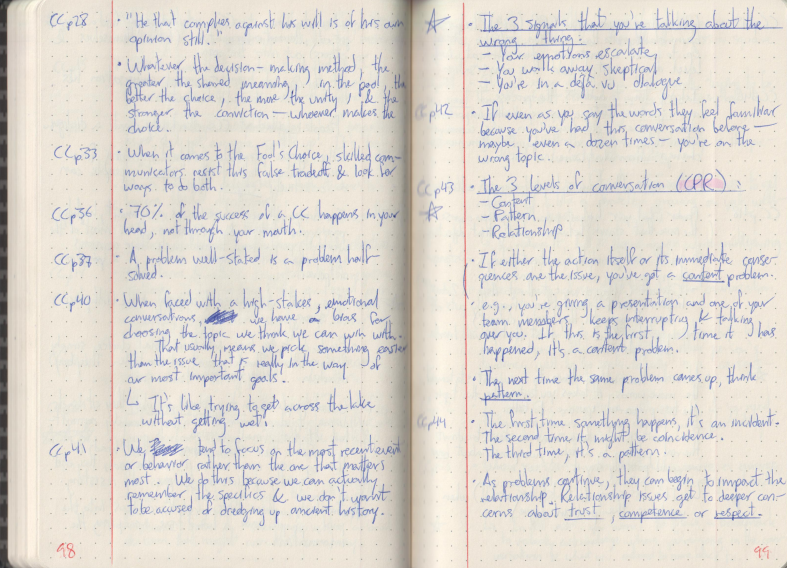 CCp28 · "He that complies against his will is of his own
opinion still."
· Whatever the decision-making method, the
greater the shared meaning, in the pool, the
better the choice, the more the unity, & the
stronger the conviction — whoever makes the
choice.
CCp33 · When it comes to the Fool's Choice, skilled com-
municators resist this false tradeoff & look for
ways to do both.
CCp36 · 70% of the success of a CC happens in your
head, not through your mouth.
CCp37 · A problem well-stated is a problem half-
solved.
CCp40 · When faced with a high-stakes, emotional
conversations, we have a bias for
choosing the topic we think we can win with.
That usually means we pick something easier
than the issue that is really in the way of
our most important goals.
↳ It's like trying to get across the lake
without getting wet!
CCp41 · We tend to focus on the most recent event
or behavior rather than the one that matters
most. We do this because we can actually
remember the specifics & we don't want
to be accused of dredging up ancient history.
98
☆ · The 3 signals that you're talking about the
wrong thing:
— Your emotions escalate
— You walk away skeptical
— You're in a déjà vu dialogue
CCp42 · If even as you say the words they feel familiar
because you've had this conversation before —
maybe even a dozen times — you're on the
wrong topic.
CCp43 · The 3 levels of conversation (CPR):
☆ — Content
— Pattern
— Relationship
· If either the action itself or its immediate conse-
quences are the issue, you've got a content problem.
· e.g., you're giving a presentation and one of your
team members keeps interrupting & talking
over you. If this is the first time it has
happened, it's a content problem.
· The next time the same problem comes up, think
pattern.
CCp44 · The first time something happens, it's an incident.
The second time it might be coincidence.
The third time, it's a pattern.
· As problems continue, they can begin to impact the
relationship. Relationship issues get to deeper con-
cerns about trust, competence or respect.
99